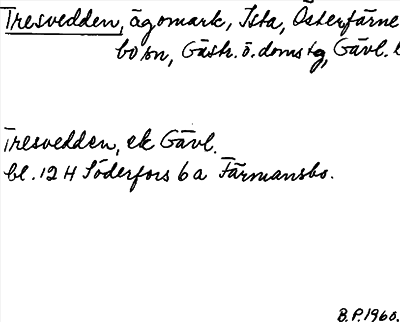 Tresvedden, ägomark, Ista, Österfärne
bo sn, Gästr. ö. domstg, Gävl. l
Tresvedden, ek Gävl.
bl. 12 H Söderfors 6 a Färmansbo.
B.P. 1960.